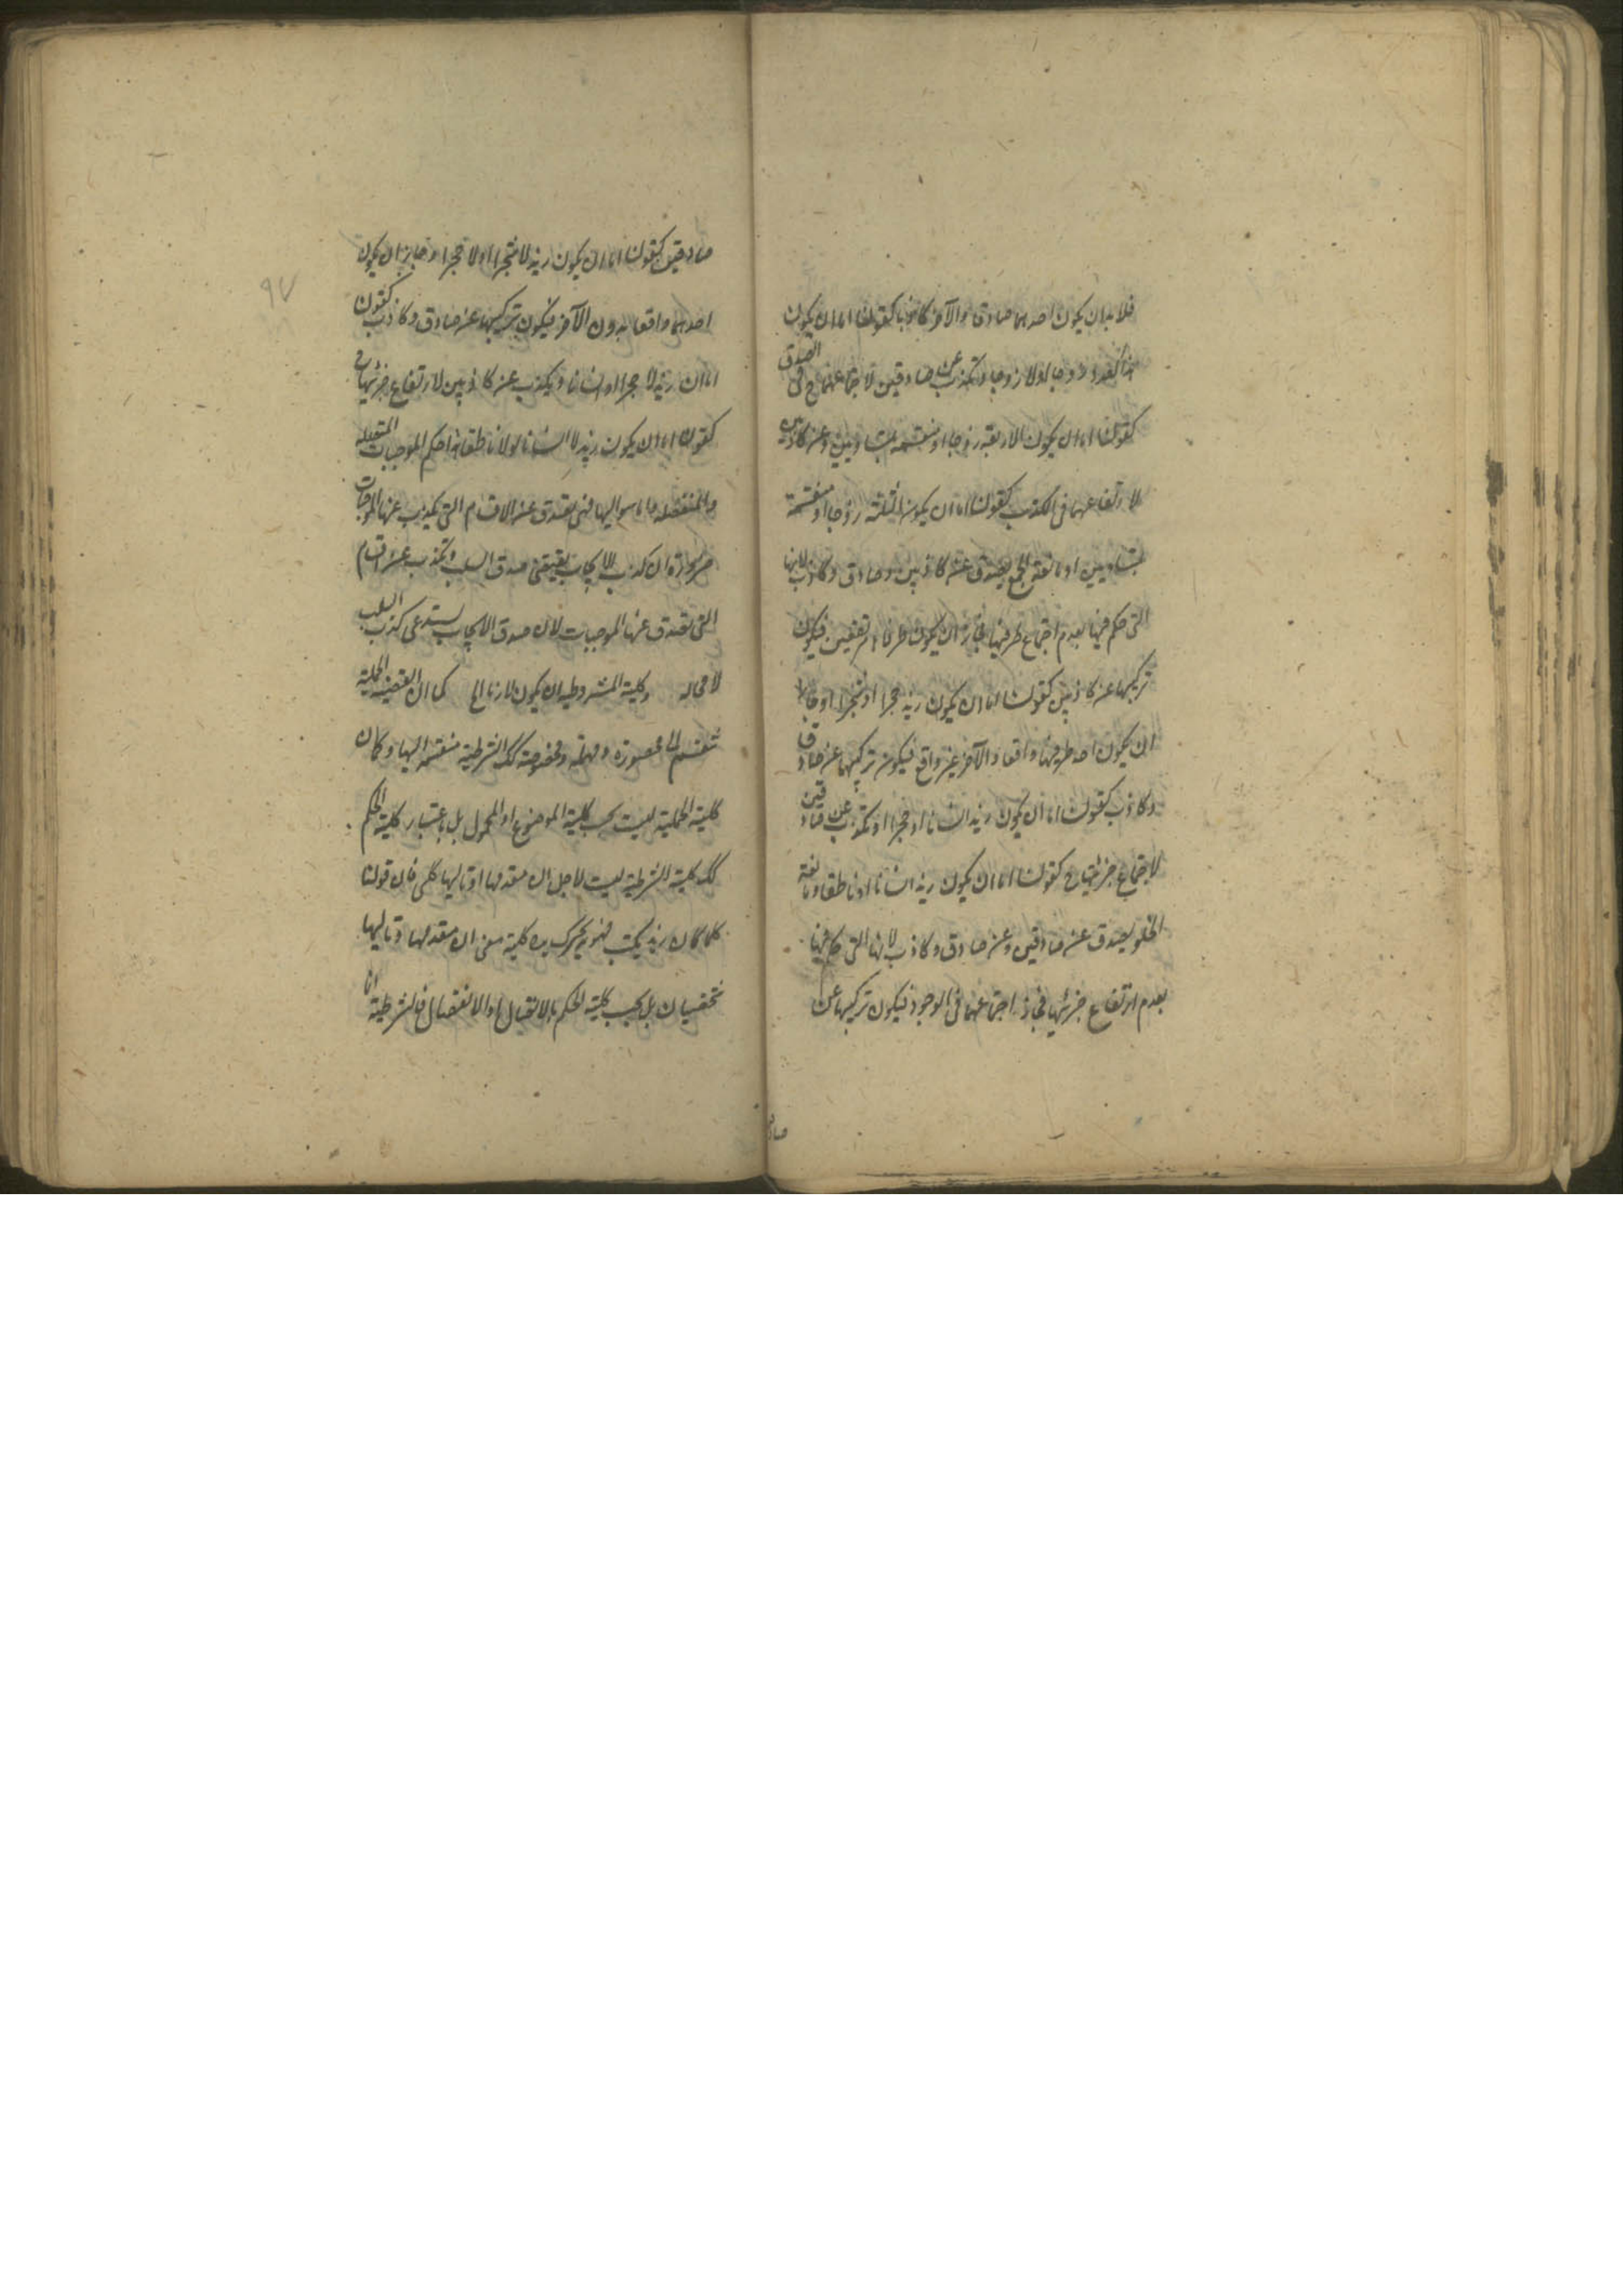 فلا بد ان يكون احدهما صادقا والآخر كاذبا كقولنا اما ان يكون
هذا العدد زوجا او لا زوجا وتكذب عن صادقين لاجتماعهما ح في الصدق
كقولنا اما ان يكون الاربعة زوجا او منقسمة بمتساويين وعن كاذبين
لارتفاعهما في الكذب كقولنا اما ان يكون الثلثة زوجا او منقسمة
بمتساويين او مانعة الجمع يصدق عن كاذبين وصادق وكاذب لانها
التي حكم فيها بعدم اجتماع طرفيها فجاز ان يكون طرفاها مرتفعين فيكون
تركيبها عن كاذبين كقولنا اما ان يكون زيد حجرا او شجرا او جاز
ان يكون احد طرفيها واقعا والآخر غير واقع فيكون تركيبها عن صادق
وكاذب كقولنا اما ان يكون زيد انسانا او حجرا او تكذب عن صادقين
لاجتماع جزئيها ح كقولنا اما ان يكون زيد انسانا او ناطقا ومانعة
الخلو يصدق عن صادقين وعن صادق وكاذب لانها التي حكم فيها
بعدم ارتفاع جزئيها فجاز اجتماعهما في الوجود فيكون تركيبها عن
صاد
٩٧
صادقين كقولنا اما ان يكون زيد لا شجرا او لا حجرا وجاز ان يكون
احدهما واقعا بدون الآخر فيكون تركيبها عن صادق وكاذب كقولنا
اما ان زيد لا حجرا او انسانا ويكذب عن كاذبين لارتفاع جزئيها ح
كقولنا اما ان يكون زيد لا انسانا او لا ناطقا هذا حكم الموجبات المتصلة
والمنفصلة واما سوالبها فهي تصدق عن الاقسام التي يكذب عنها الموجبات
ضرورة ان كذب الايجاب يقتضي صدق السلب وتكذب عن الاقسام
التي تصدق عنها الموجبات لان صدق الايجاب يستدعي كذب السلب
لا محاله وكلية المشروطية ان يكون لازما الخ كما ان القضية الحملية
تنقسم الى محصورة ومهملة ومخصوصة كك الشرطية منقسمة اليها وكان
كلية الحملية ليست بحسب كلية الموضوع او المحمول بل باعتبار كلية الحكم
كك كلية الشرطية ليست لاجل ان مقدمها او تاليها كلي فان قولنا
كلما كان زيد يكتب فهو يحرك يده كلية مع ان مقدمها وتاليها
شخصيان بل بحسب كلية الحكم بالاتصال او الانفصال فالشرطية انما